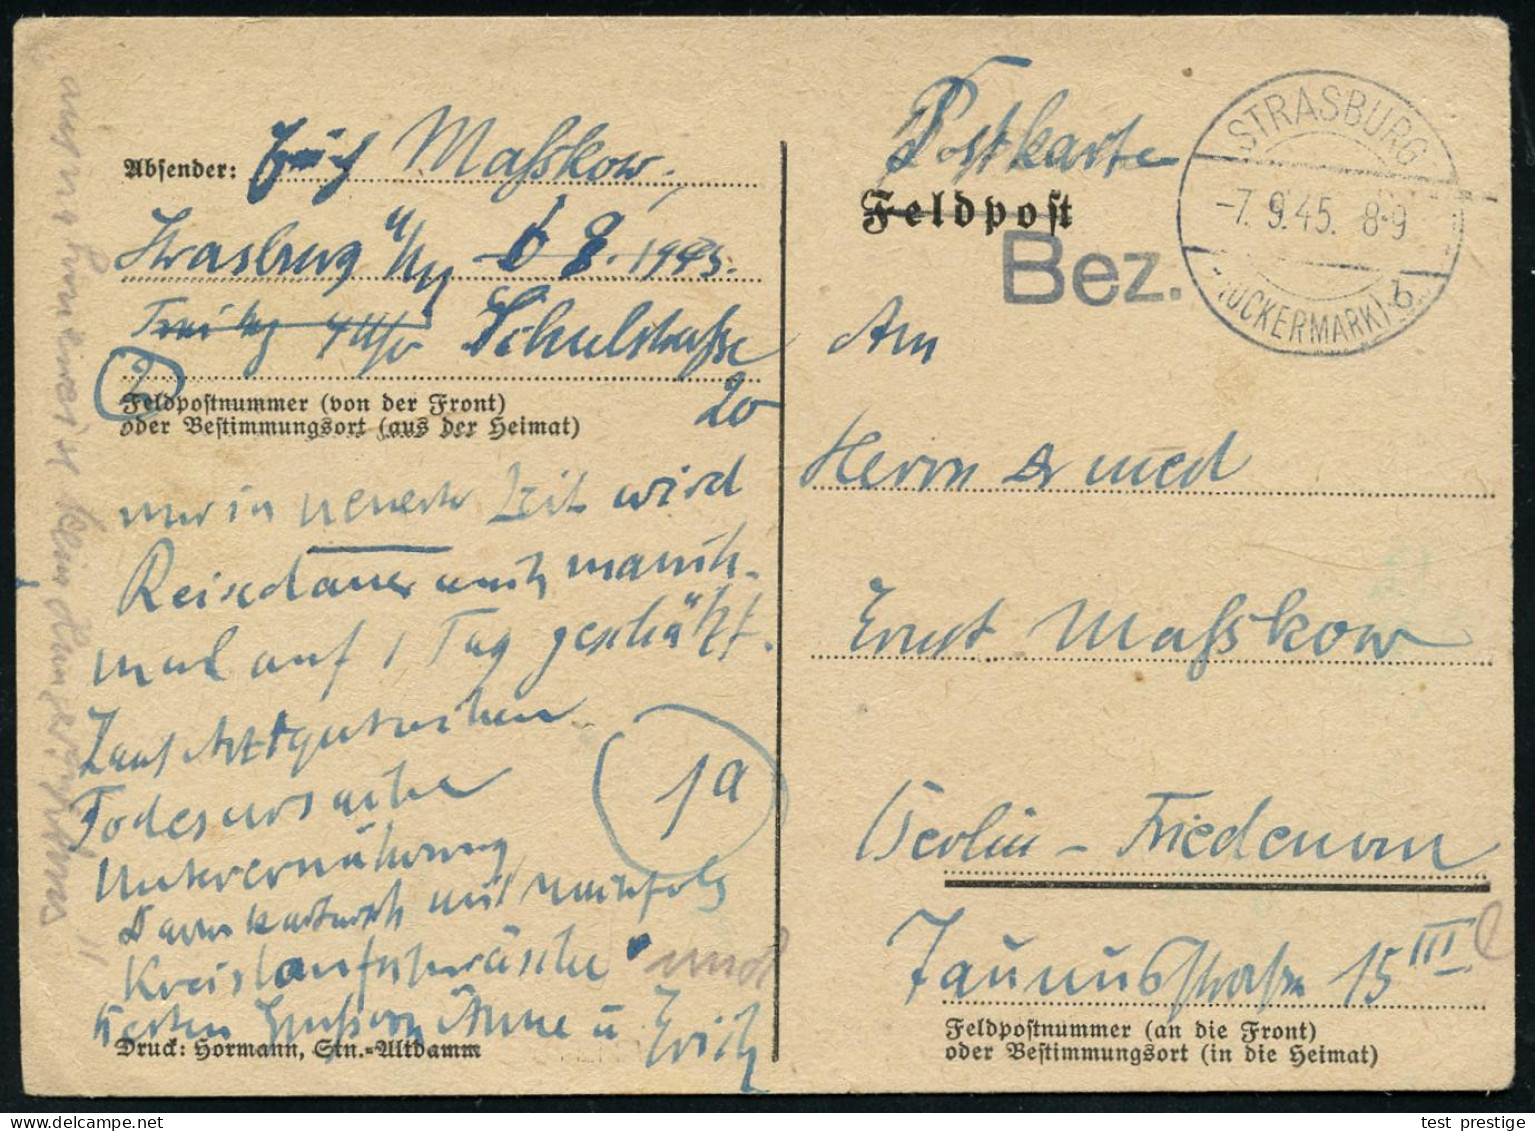 Absender: Erich Maßkow,
Strasburg U/M 6 8. 1945.
Freitag Schulstraße
2 20
Feldpostnummer (von der Front)
oder Bestimmungsort (aus der Heimat)
nur in neuerer Zeit wird
Reisedauer auch manch-
mal auf 1 Tag geschätzt.
Todesursache
1a
Unterernährung
Darmkatarrh mit nachfolg
Kreislaufschwäche und
Anne u Erich
Druck: Hormann, Stn.-Altdamm
Postkarte
Feldpost
Bez.
STRASBURG
-7.9.45. 8-9
(UCKERMARK) b
An
Herrn Dr med
Ernst Maßkow
Berlin - Friedenau
Taunusstraße 15 III l
Feldpostnummer (an die Front)
oder Bestimmungsort (in die Heimat)
test prestige